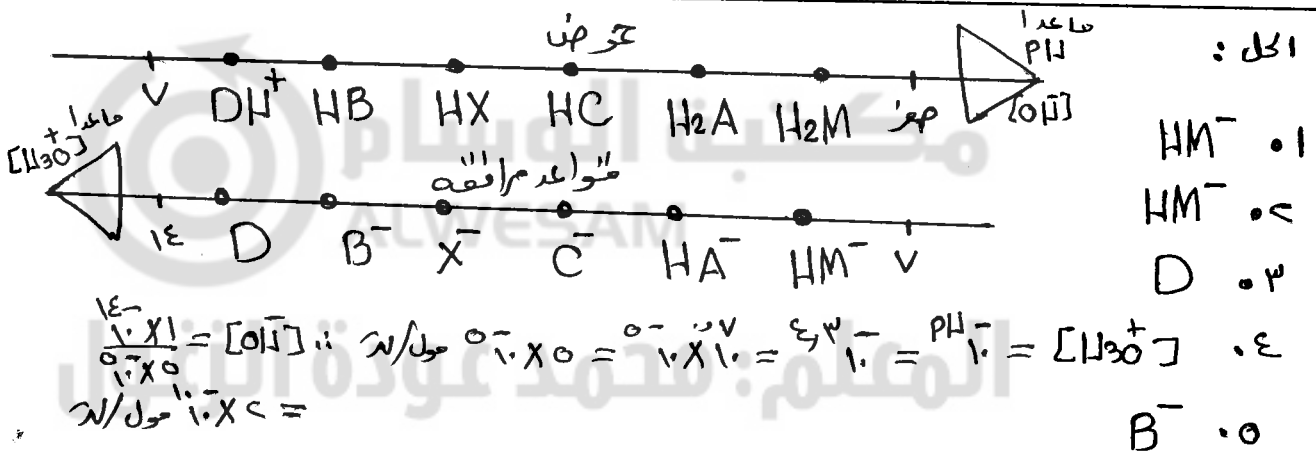 الحل :
حموض
ماعدا PH [OH⁻]
٧ DH⁺ HB HX HC H₂A H₂M صفر
ماعدا [H₃O⁺]
قواعد مرافقه
١٤ D B⁻ X⁻ C⁻ HA⁻ HM⁻ ٧
١. HM⁻
٢. HM⁻
٣. D
٤. [H₃O⁺] = ١٠⁻ᴾᴴ = ١٠⁻⁴٫³ = ١٠⁰٫⁷ × ١٠⁻⁵ = ٥ × ١٠⁻⁵ مول/لتر ∴ [OH⁻] = ١ × ١٠⁻¹⁴ / ٥ × ١٠⁻⁵
= ٢ × ١٠⁻¹⁰ مول/لتر
٥. B⁻
مكتبة الوسام
ALWESAM
المعلم: محمد عودة